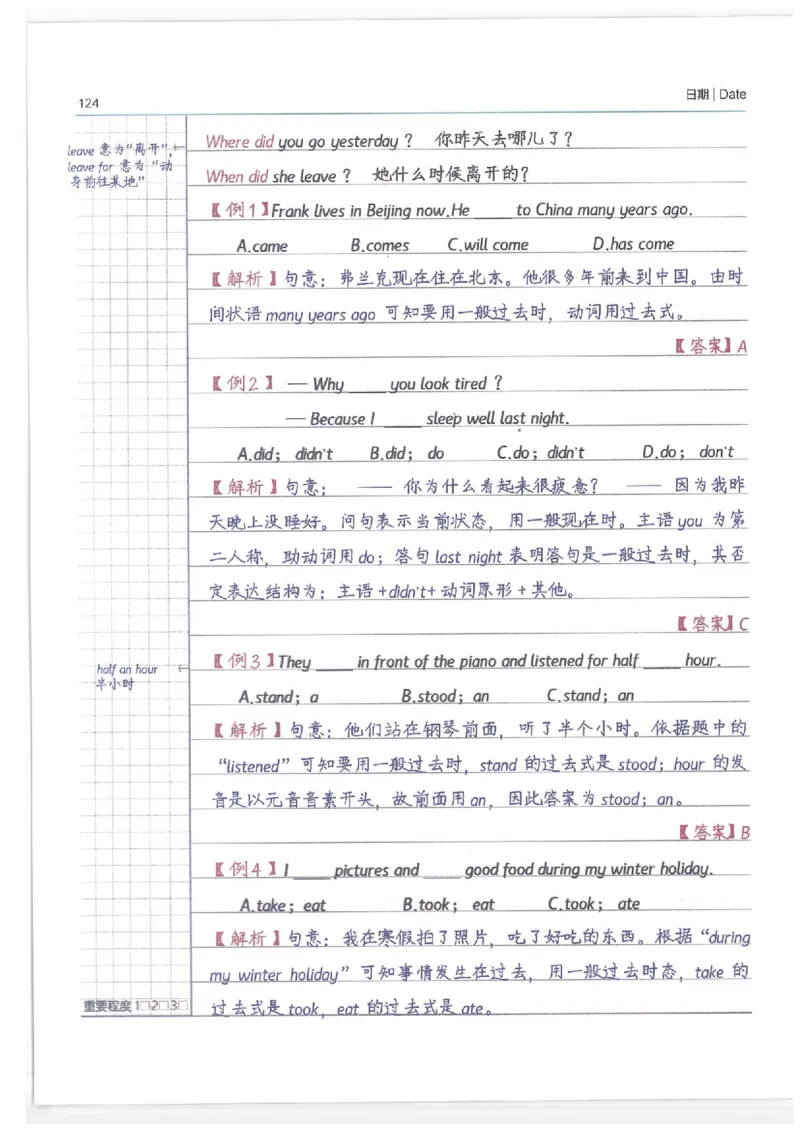 124
日期 | Date
leave 意为“离开”，
leave for 意为 “动
身前往某地”
Where did you go yesterday？ 你昨天去哪儿了？
When did she leave？ 她什么时候离开的？
【例1】Frank lives in Beijing now.He _____ to China many years ago.
A.came B.comes C.will come D.has come
【解析】句意：弗兰克现在住在北京。他很多年前来到中国。由时
间状语 many years ago 可知要用一般过去时，动词用过去式。
【答案】A
【例2】 — Why _____ you look tired？
— Because I _____ sleep well last night.
A.did； didn't B.did； do C.do；didn't D.do； don't
【解析】句意： —— 你为什么看起来很疲惫？ —— 因为我昨
天晚上没睡好。问句表示当前状态，用一般现在时。主语 you 为第
二人称，助动词用 do；答句 last night 表明答句是一般过去时，其否
定表达结构为：主语 +didn't+ 动词原形 + 其他。
【答案】C
half an hour
半小时
【例3】They _____ in front of the piano and listened for half _____ hour.
A.stand；a B.stood；an C.stand；an
【解析】句意：他们站在钢琴前面，听了半个小时。依据题中的
“listened”可知要用一般过去时，stand 的过去式是 stood；hour 的发
音是以元音音素开头，故前面用 an，因此答案为 stood；an。
【答案】B
【例4】I _____ pictures and _____ good food during my winter holiday.
A.take；eat B.took； eat C.took； ate
【解析】句意：我在寒假拍了照片，吃了好吃的东西。根据 “during
my winter holiday” 可知事情发生在过去，用一般过去时态，take 的
过去式是 took，eat 的过去式是 ate。
重要程度 1□2□3□